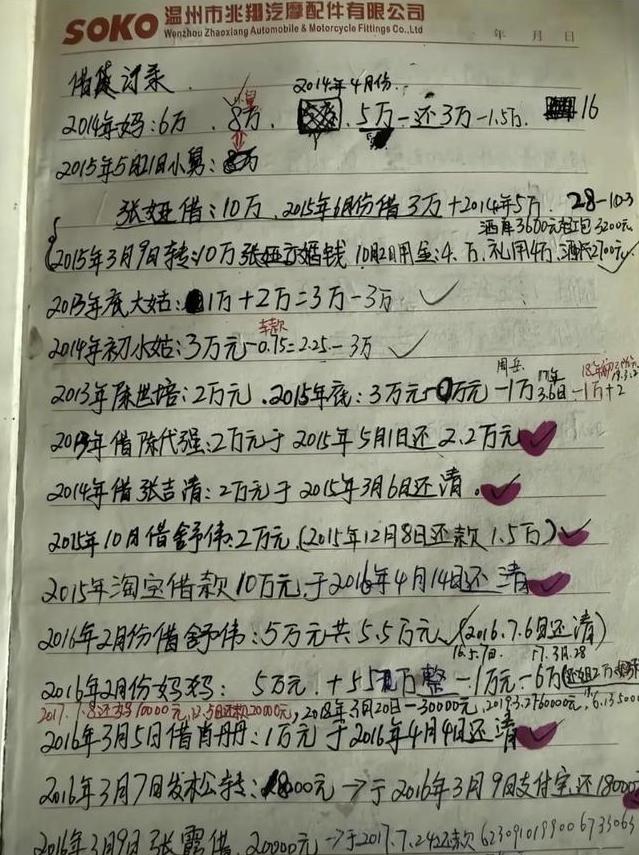 SOKO 温州市兆翔汽摩配件有限公司
Wenzhou Zhaoxiang Automobile & Motorcycle Fittings Co.,Ltd
年 月 日
借贷记录
2014年4月份
2014年妈:6万. 8万. 5万-还3万-1.5万. 16
2015年5月21日小舅:
张娅借:10万. 2015年6月份借3万+2014年5万 28-10.3
酒席3600元 红包3200元
2015年3月9日转:10万张娅 婚钱 10月2日用金:4.万.礼用4万.酒2700元
2013年底大姑:1万+2万=3万-3万
车款
2014年初小姑:3万元-0.75=2.25-3万
2013年 世培:2万元.2015年底:3万元 万元-1万 17年3.6日-1万+2
2013年借陈代强:2万元于2015年5月1日还2.2万元
2014年借张吉清:2万元于2015年3月6日还清.
2015年10月借舒伟:2万元(2015年12月8日还款1.5万)
2015年淘宝借款10万元.于2016年4月14日还清
2016年2月份借舒伟:5万元共5.5万元(2016.7.6日还清)
16.5.7日. 17.3月.28
2016年2月份妈妈:5万元.+5 万整-1万元-6万
2017.7.8还妈10000元, 还款20000元,2018年3月20日-30000元,2019.3.2
2016年3月5日借肖丹丹:1万元于2016年4月4日还清
2016年3月7日发 转:18000元→于2016年3月9日支付宝还18000
2016年3月9日张露借.20000元→于2017.7.24还款6230910199006733063